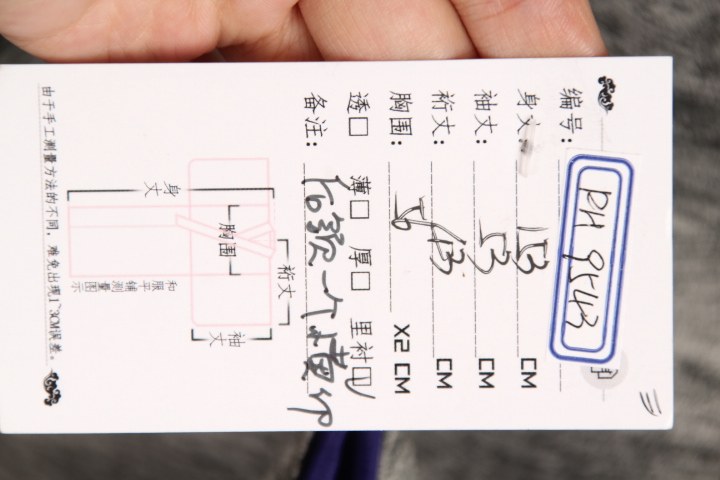 编号: PH 9543
身丈: 153 CM
袖丈: 53 CM
裄丈: 63 CM
胸围: 56 X2 CM
透□ 薄□ 厚□ 里衬□
备注:
身丈
胸围
裄丈
袖丈
和服平铺测量图示
由于手工测量方法的不同，难免出现1~3CM误差。